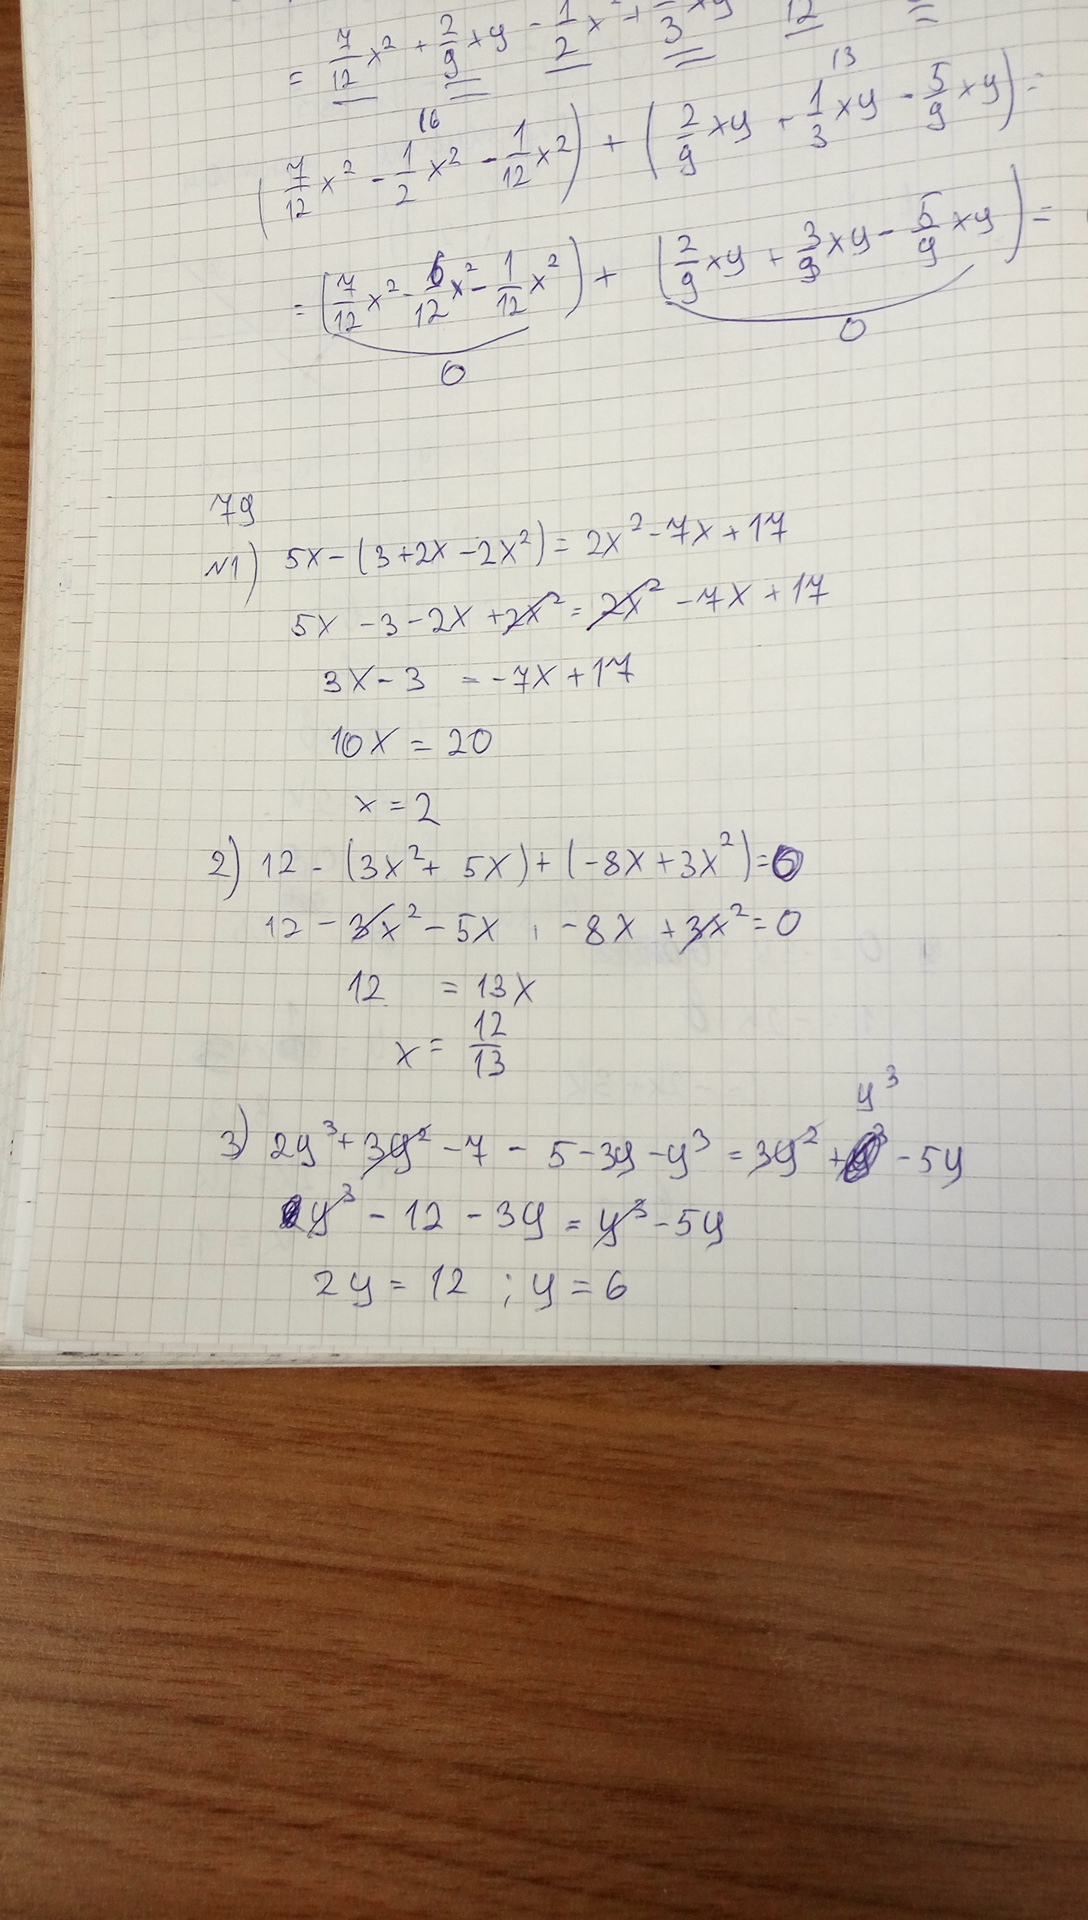 = 7/12 x² + 2/9 xy - 1/2 x² + /3 xy 12
16 13
(7/12 x² - 1/2 x² - 1/12 x²) + (2/9 xy + 1/3 xy - 5/9 xy) =
= (7/12 x² - 6/12 x² - 1/12 x²) + (2/9 xy + 3/9 xy - 5/9 xy) =
0 0
79
N1) 5x - (3 + 2x - 2x²) = 2x² - 7x + 17
5x - 3 - 2x + 2x² = 2x² - 7x + 17
3x - 3 = -7x + 17
10x = 20
x = 2
2) 12 - (3x² + 5x) + (-8x + 3x²) = 0
12 - 3x² - 5x - 8x + 3x² = 0
12 = 13x
x = 12/13
y³
3) 2y³ + 3y² - 7 - 5 - 3y - y³ = 3y² + - 5y
y³ - 12 - 3y = y³ - 5y
2y = 12 ; y = 6